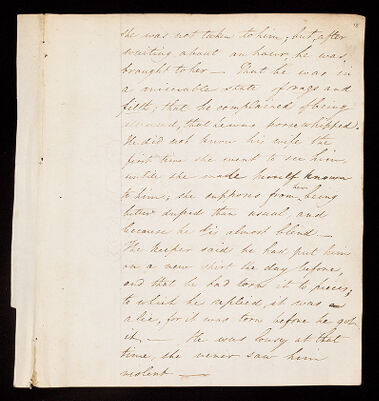 She was not taken to him; but, after
waiting about an hour, he was
brought to her — That he was in
a miserable state of rags and
filth; that he complained of being
that he was horsewhipped.
He did not know his wife the
first time she went to see him,
until she made herself known
to him; she supposes from her being
better dressed than usual, and
because he is almost blind. —
The Keeper said he had put him
on a new shirt the day before,
and that he had torn it to pieces;
to which he replied, it was a
a lie, for it was torn before he got
it. — He was lousy at that
time, she never saw him
violent —